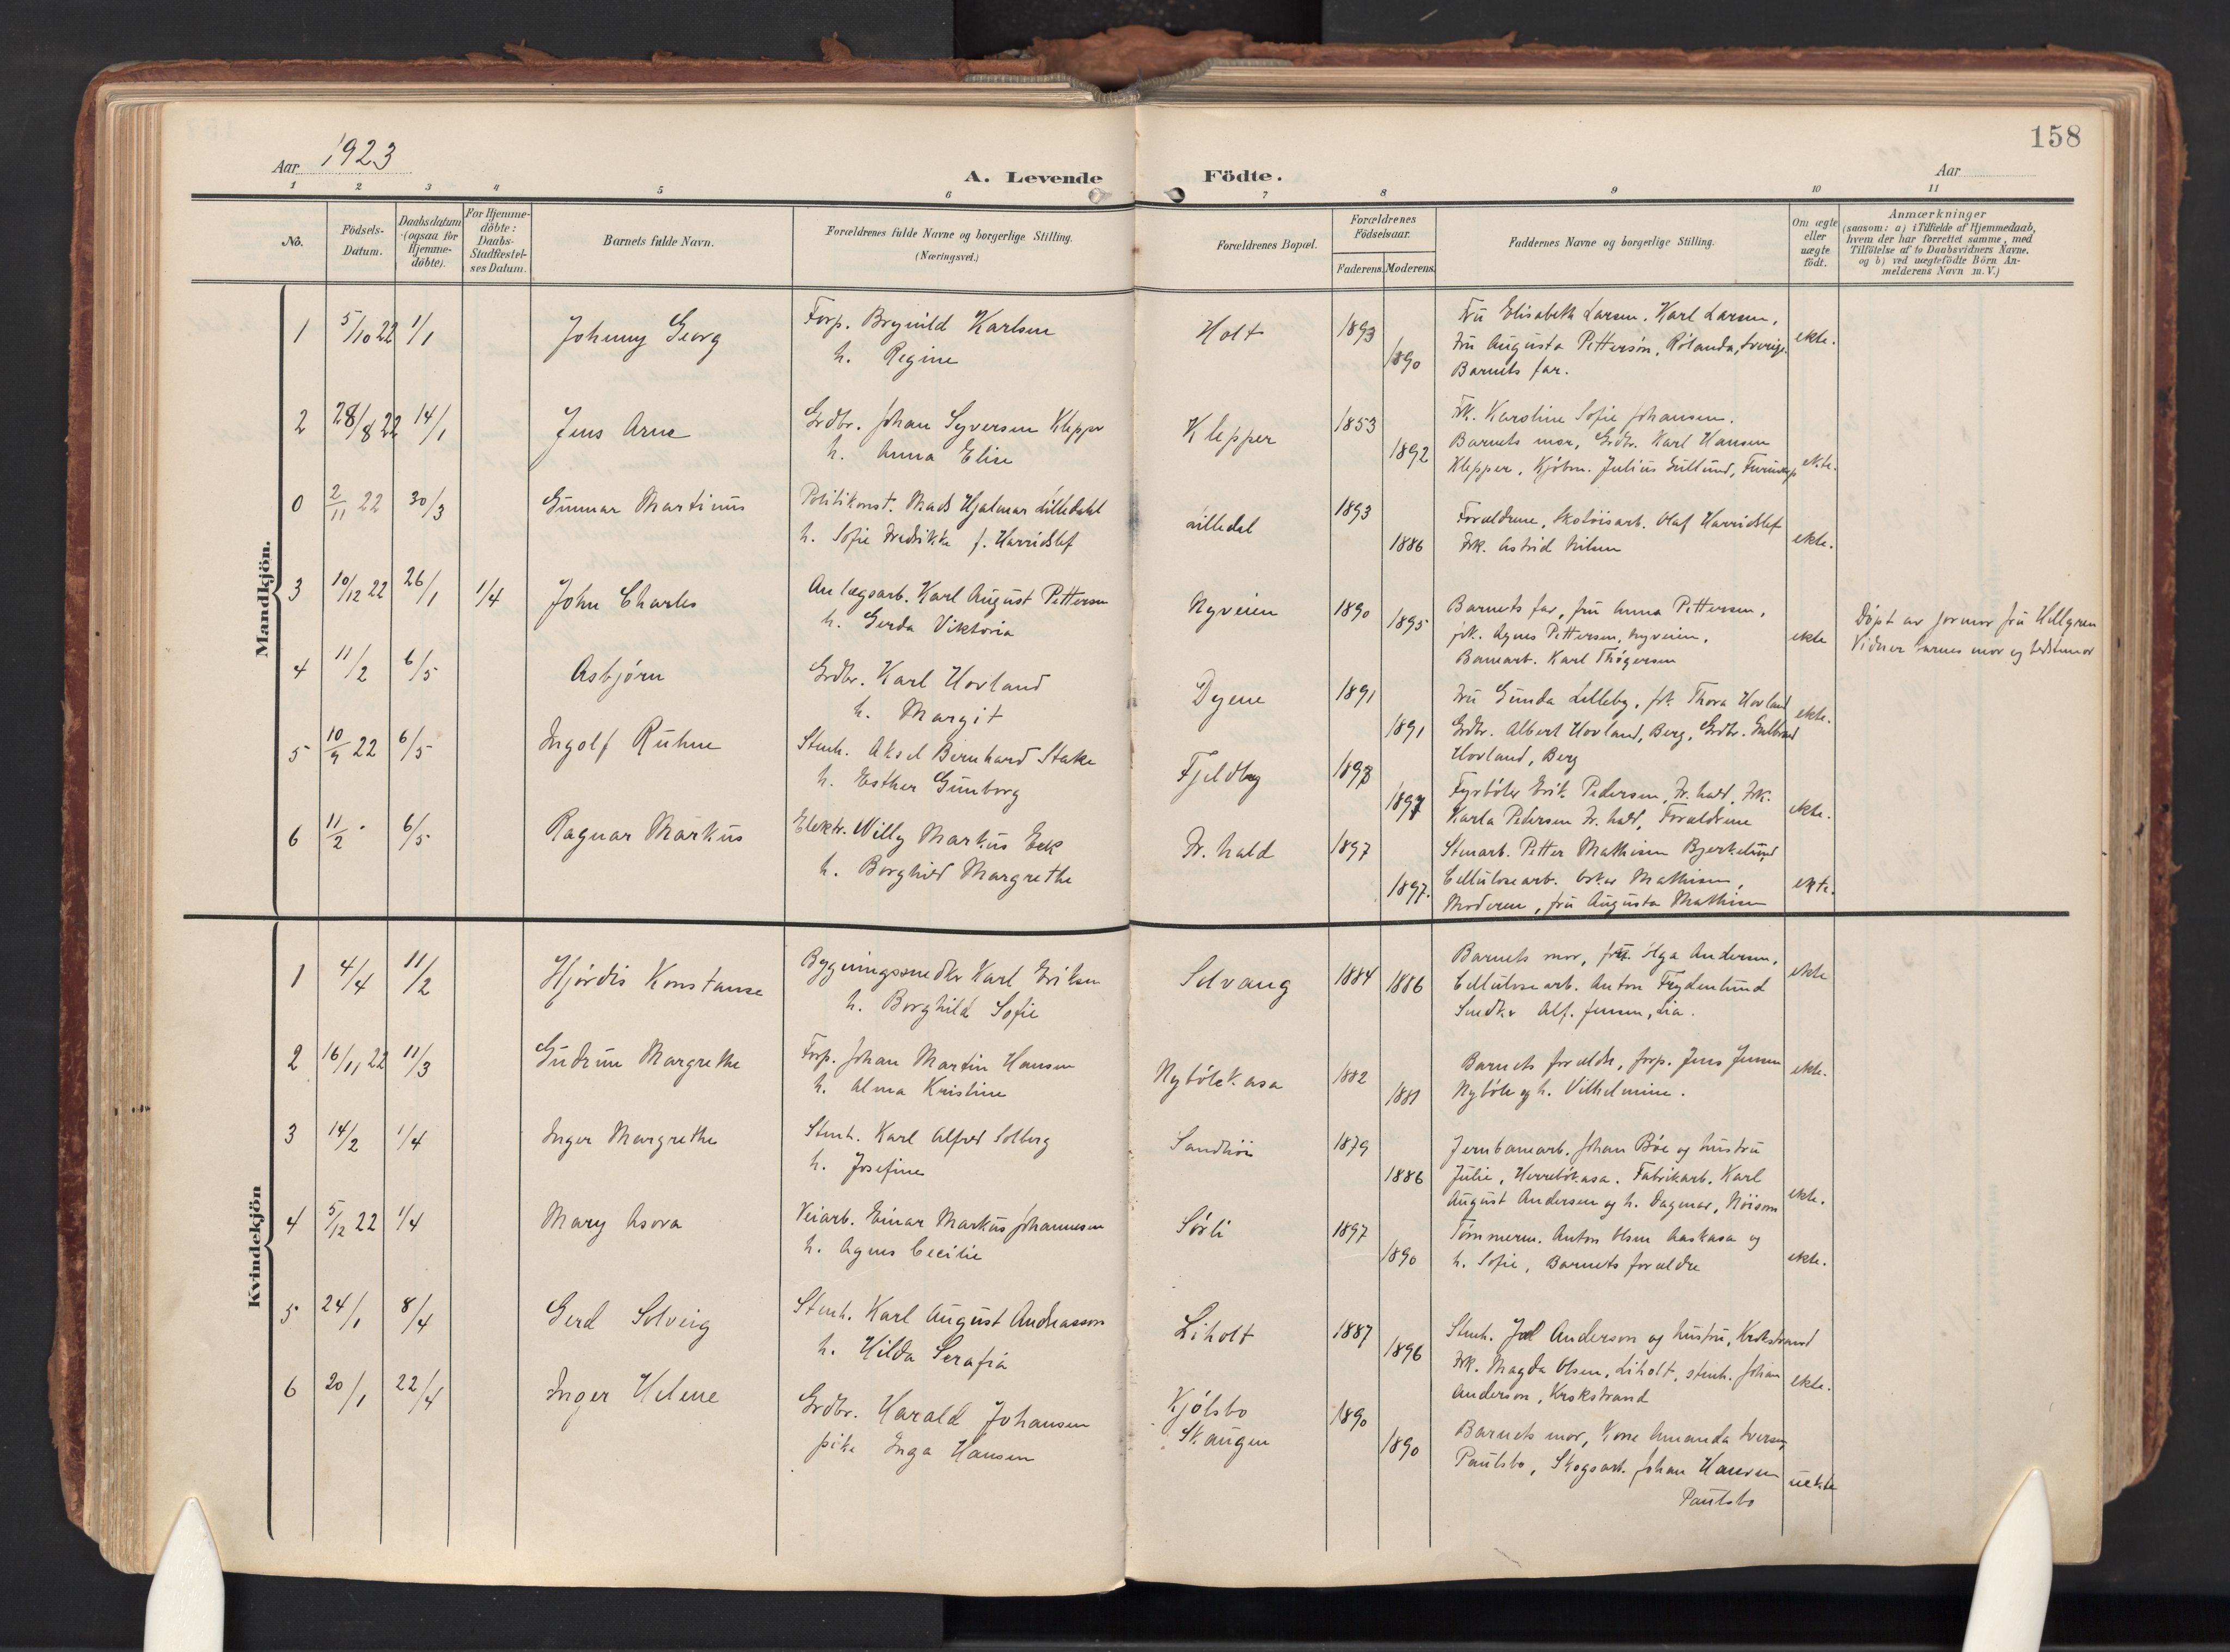 158
Aar 1923
A. Levende Födte.
Aar
1 2 3 4 5 6 7 8 9 10 11
No.
Födsels-Datum.
Daabsdatum (ogsaa for Hjemme-döbte).
For Hjemme-döbte: Daabs-Stadfæstel-ses Datum.
Barnets fulde Navn.
Forældrenes fulde Navne og borgerlige Stilling. (Næringsvei.)
Forældrenes Bopæl.
Forældrenes Födselsaar.
Faderens. Moderens.
Faddernes Navne og borgerlige Stilling.
Om ægte eller uægte födt.
Anmærkninger
(saasom: a) i Tilfælde af Hjemmedaab,
hvem der har forrettet samme, med
Tilföielse af to Daabsvidners Navne.
og b) ved uægtefödte Börn An-
melderens Navn m. V.)
Mandkjön.
1 5/10 22 1/1 Johnny Georg Forp. Brynild Karlsen Holt 1893 Fru Elisabeth Larsen, Karl Larsen, ekte.
h. Regine 1890 Fru Augusta Petterson, Rölanda, Sverige.
Barnets far.
2 28/8 22 14/1 Jens Arne Grdbr. Johan Syversen Klepper Klepper 1853 Frk. Karoline Sofie Johansen.
h. Anna Elise 1892 Barnets mor, Grdbr. Karl Hansen
Klepper, Kjöbm. Julius Gullund, ekte.
0 2/11 22 30/3 Gunnar Martinus Politikonst. Mads Hjalmar Lilledahl Lilledal 1893 Forældrene, Skotöisarb. Olaf Harridslef
h. Sofie Fredrikke f. Harridslef 1886 Frk. Astrid Nilsen ekte.
3 10/12 22 26/1 1/4 John Charles Anlægsarb. Karl August Pettersen Nyveien 1890 Barnets far, fru Anna Pettersen, Döpt av jormor fru Hellgren
h. Gerda Viktoria 1895 frk. Agnes Pettersen, Nyveien, ekte Vidner barnes mor og bedstemor
Banearb. Karl Thögersen
4 11/2 6/5 Asbjörn Grdbr. Karl Hovland Dyene 1891 Fru Gunda Lilleby, frk. Thora Hovland ekte.
h. Margit 1891 Grdbr. Albert Hovland, Berg, Grdbr. Gulbrand
Hovland, Berg
5 10/9 22 6/5 Ingolf Ruhne Stenh. Aksel Bernhard Stake Fjeldbg 1898 Fyrböter Erik Pedersen, Fr.hald, Frk.
h. Esther Gunborg 1897 Karla Pedersen Fr.hald, Forældrene ekte.
6 11/2 6/5 Ragnar Markus Elektr. Willy Markus Eek Fr.hald 1897 Stenarb. Petter Mathisen Bjerkelund
h. Borghild Margrethe 1897. Cellulosearb. Oskar Mathisen, ekte.
Moderen, fru Augusta Mathisen
Kvindekjön
1 4/4 11/2 Hjördis Konstanse Bygningssnedker Karl Eriksen Solvang 1884 1886 Barnets mor, fru Olga Andersen, ekte
h. Borghild Sofie Cellulosearb. Anton Frydenlund
Snedker Alf. Jensen, Lia.
2 16/11 22 11/3 Gudrun Margrethe Forp. Johan Martin Hansen Nybölekasa 1882 Barnets forældre, forp. Jens Jensen ekte.
h. Alma Kristine 1881 Nyböle og h. Vilhelmine.
3 14/2 1/4 Inger Margrethe Stenh. Karl Alfred Solberg Sandhöi 1879 Jernbanearb. Johan Böe og hustru
h. Josefine 1886 Julie, Herrebökasa. Fabrikarb. Karl
August Andersen og h. Dagmar, ekte.
4 5/12 22 1/4 Mary Asora Veiarb. Einar Markus Johannesen Sörli 1897 Tömmerm. Anton Olsen Aaskasa og
h. Agnes Cecilie 1890 h. Sofie, Barnets forældre ekte.
5 24/1 8/4 Gerd Solveig Stenh. Karl August Andreasson Liholt 1887 Stenh. Joel Anderson og hustru, Krokstrand
h. Hilda Serafia 1896 Frk. Magda Olsen, Liholt, stenh. Johan ekte.
Anderson, Krokstrand
6 20/1 22/4 Inger Helene Grdbr. Harald Johansen Kjölsbo 1890 Barnets mor, Kone Amanda Iversen,
pike Inga Hansen Skaugen 1890 Paulsbo, Skogsarb. Johan Hansen uekte
Paulsbo